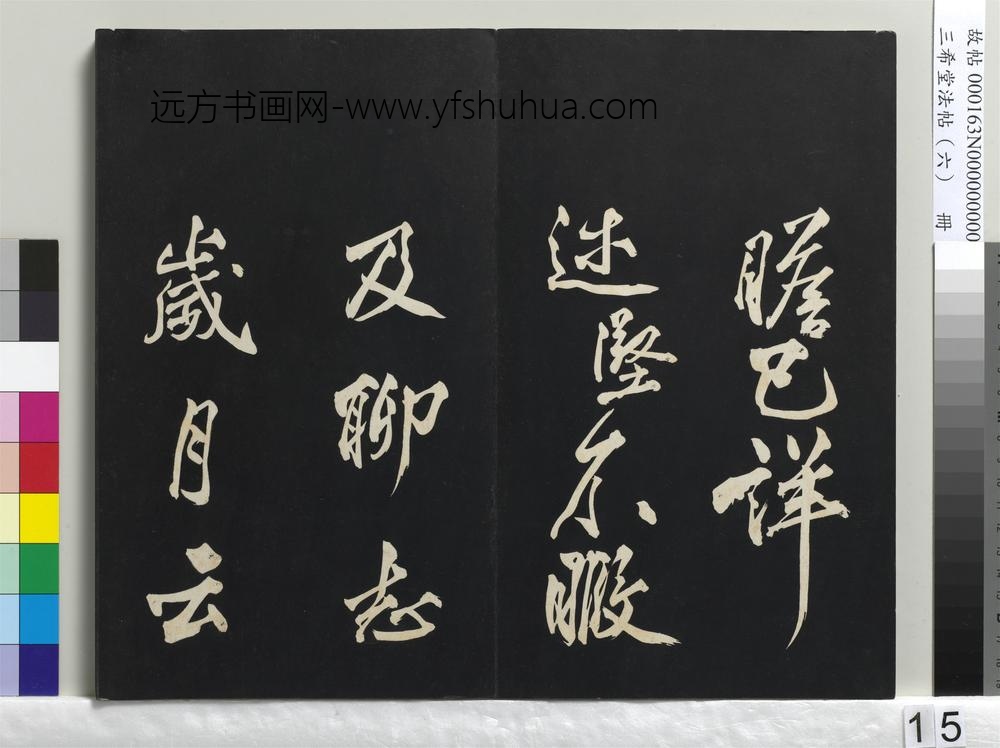 远方书画网-www.yfshuhua.com
瞻已詳
述堅不暇
及聊志
歲月云
故帖 000163N000000000
三希堂法帖（六） 冊
15